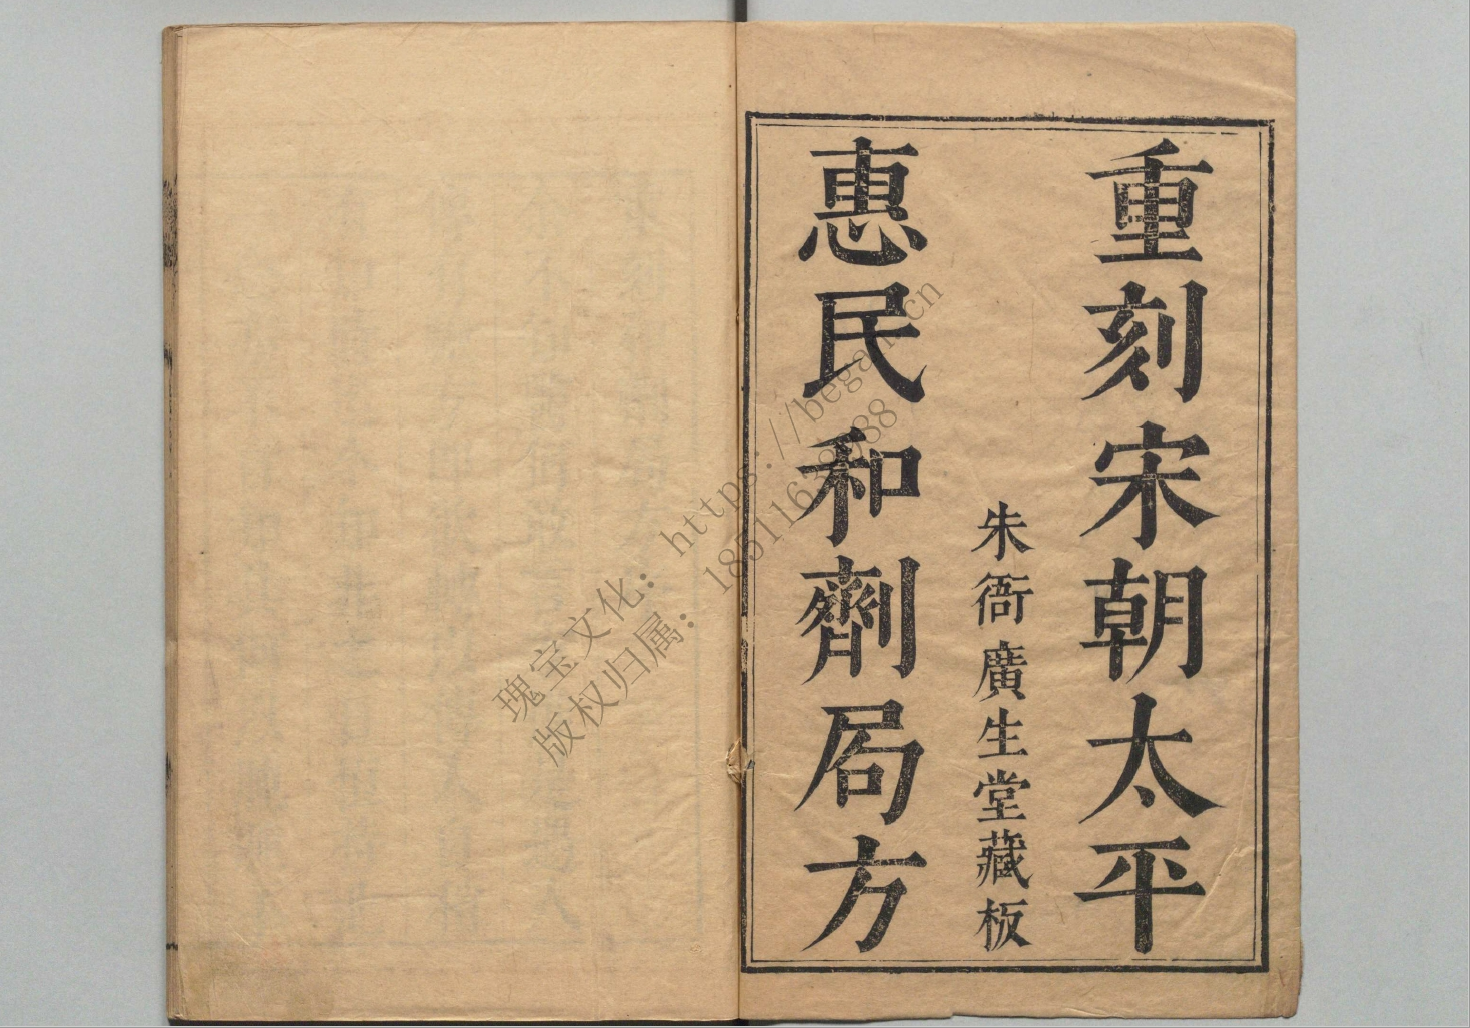 重刻宋朝太平
朱衙廣生堂藏板
惠民和劑局方
瑰宝文化：https://began.cn
版权归属：18511638988